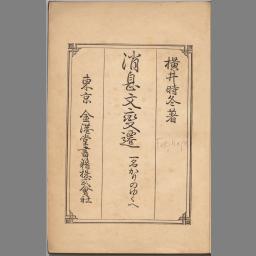 横井時冬著
消息文變遷
一名かりのゆくへ
東京 金港堂書籍株式會社